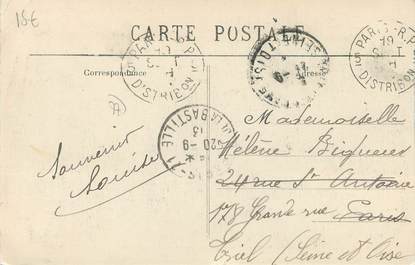 15€
CARTE POSTALE
Correspondance
Adresse
PARIS R.P.
DISTRIBON
PARIS R.P.
DISTRIBON
SEINE-ET-OISE
LA BASTILLE
Souvenir
Louise
Mademoiselle
Hélène
24 rue St Antoine
178 Grande rue Paris
Triel (Seine et Oise